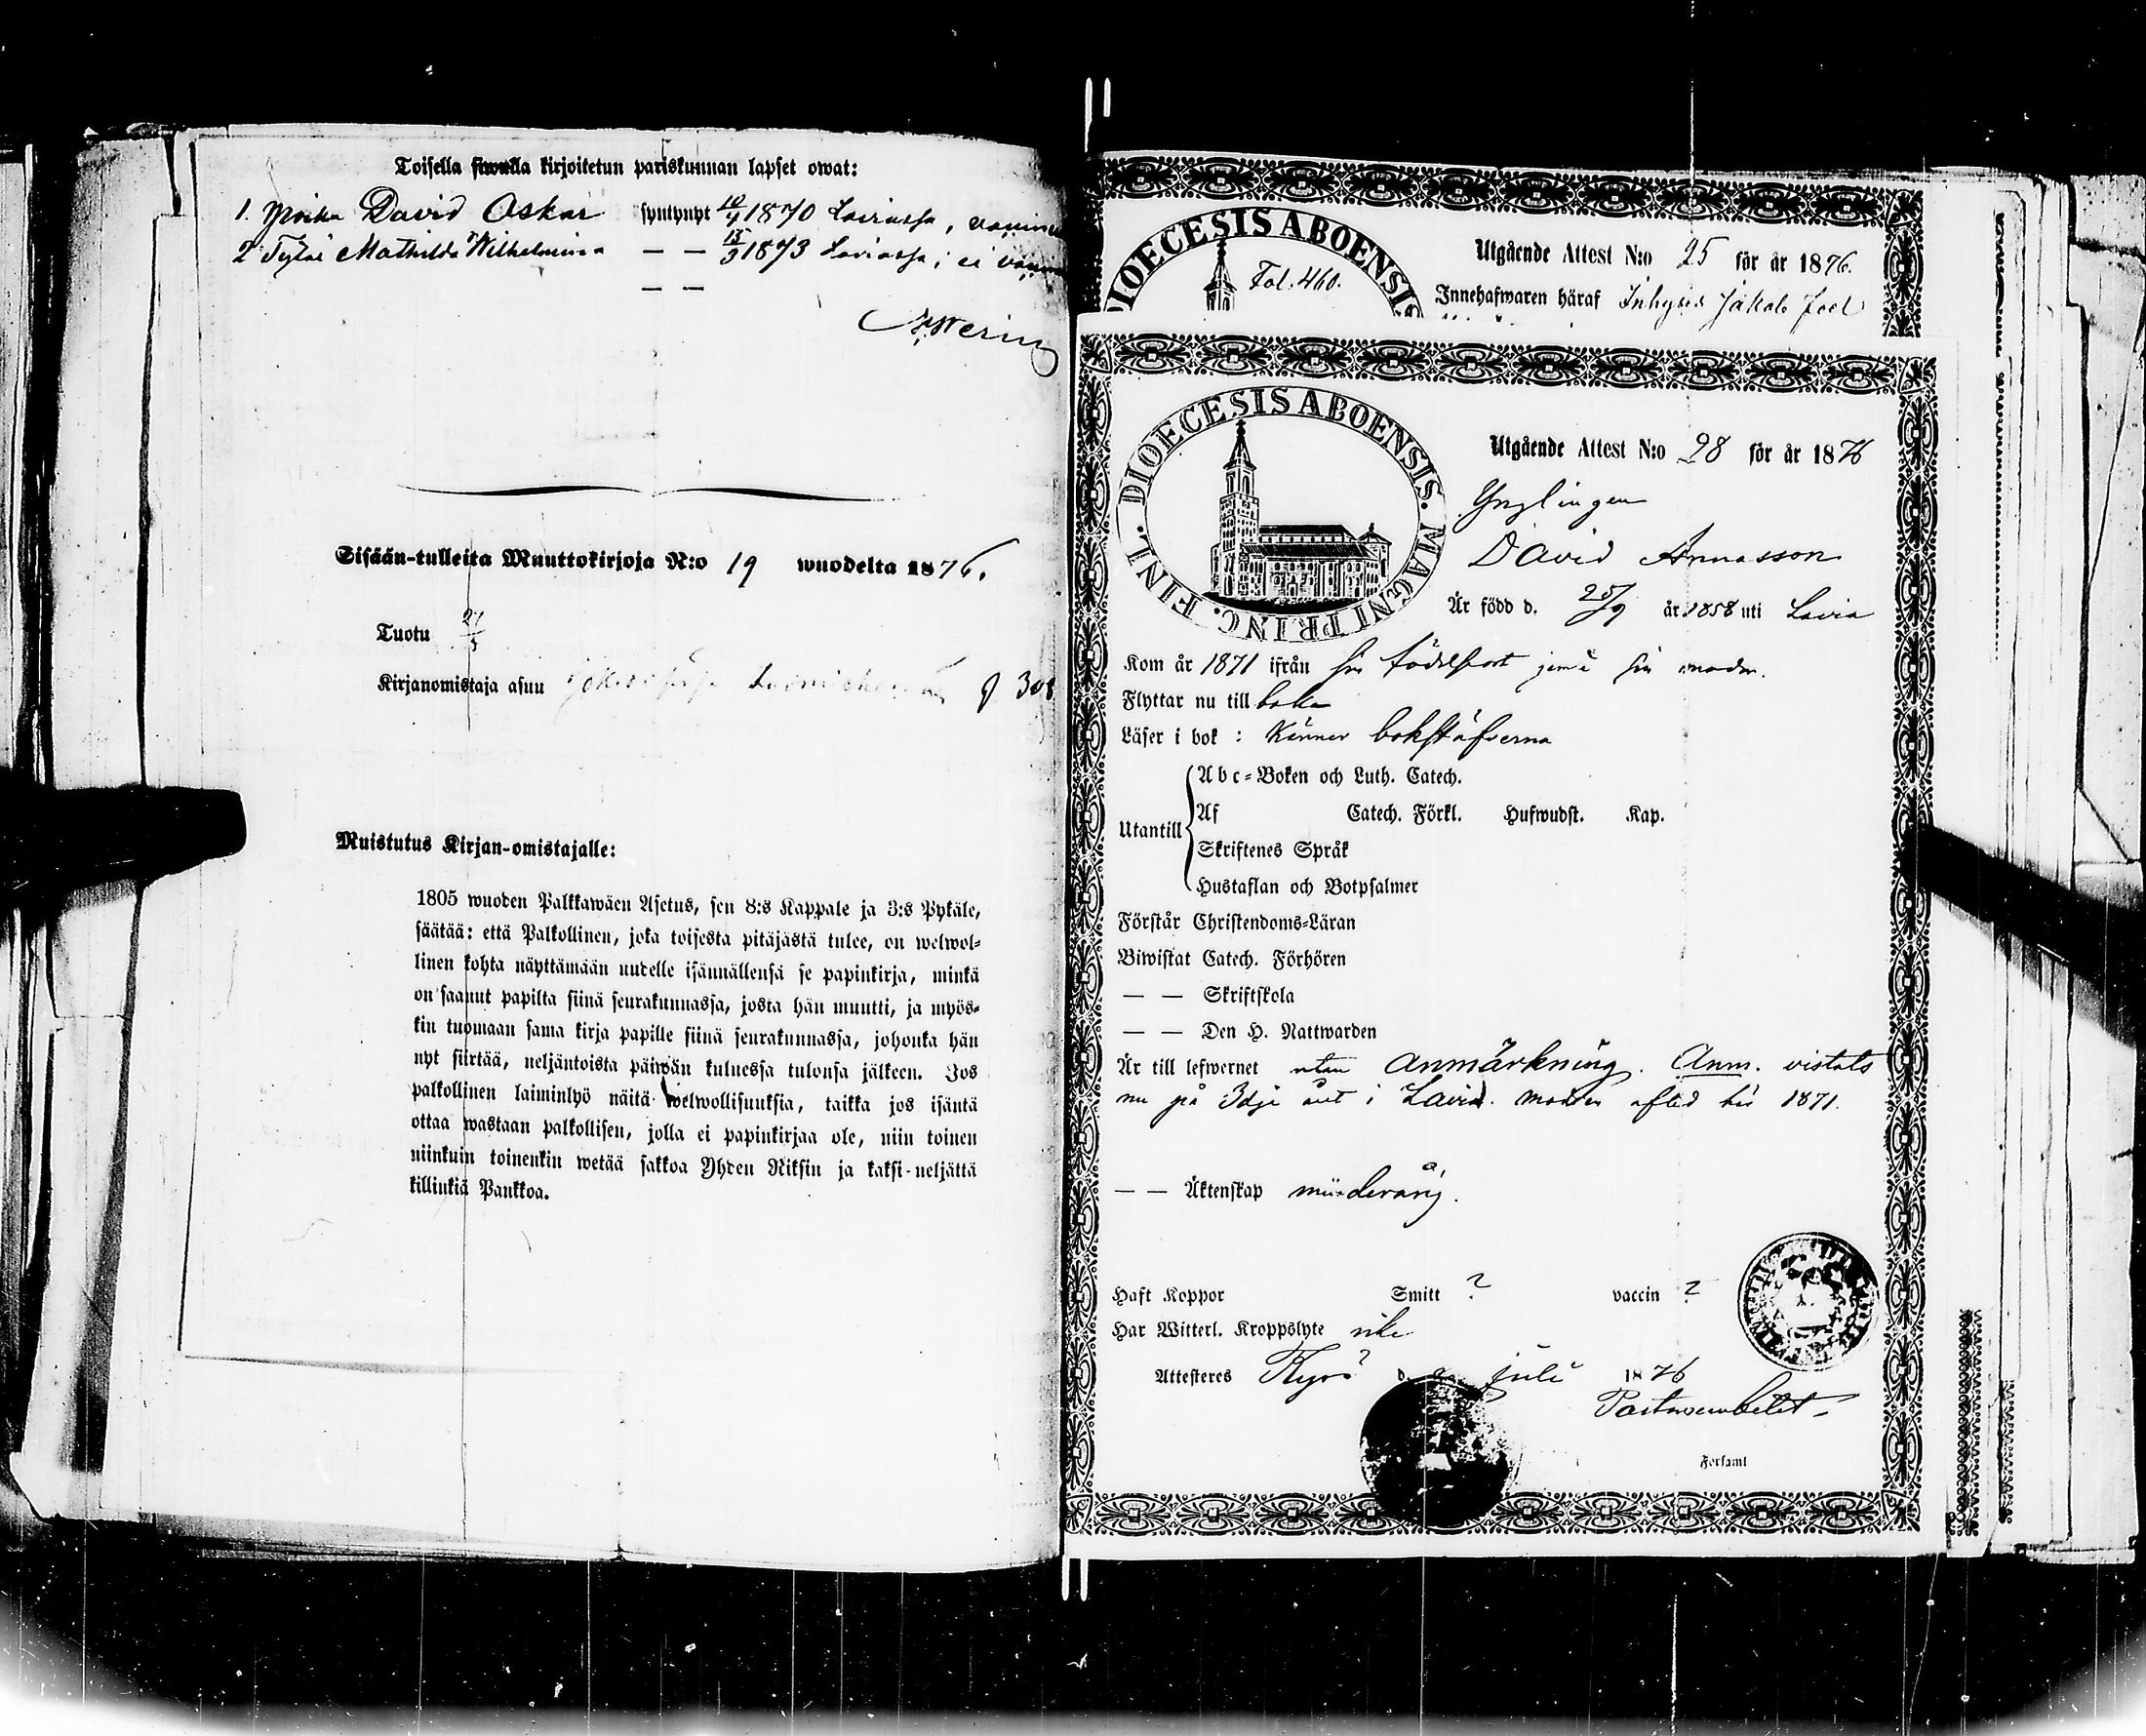 Toisella siwulla kirjoitetun pariskunnan lapset owat:
1. Poika David Oskar syntynyt 10/4 1870 Laviassa,
2 Tytär Mathilda Wilhelmina — — 15/3 1873 Laviassa; ei
— —
Sisään-tulleita Muuttokirjoja N:o 19 wuodelta 1876.
Tuotu
Kirjanomistaja asuu
Muistutus Kirjan-omistajalle:
1805 wuoden Palkkawäen Asetus, sen 8:s Kappale ja 3:s Pykäle,
säätää: että Palkollinen, joka toisesta pitäjästä tulee, on welwol-
linen kohta näyttämään uudelle isännällensä se papinkirja, minkä
on saanut papilta siinä seurakunnassa, josta hän muutti, ja myös-
kin tuomaan sama kirja papille siinä seurakunnassa, johonka hän
nyt siirtää, neljäntoista päiwän kuluessa tulonsa jälkeen. Jos
palkollinen laiminlyö näitä welwollisuuksia, taikka jos isäntä
ottaa wastaan palkollisen, jolla ei papinkirjaa ole, niin toinen
niinkuin toinenkin wetää sakkoa Yhden Riksin ja kaksi-neljättä
killinkiä Pankkoa.
DIOECESIS ABOENSIS
Fol. 460.
Utgående Attest N:o 25 för år 1876.
Innehafwaren häraf Inhyses Jakob Joel
DIOECESIS ABOENSIS. MAGNI PRINC. FINL.
Utgående Attest N:o 28 för år 1876
Ynglingen
David Annasson
Är född d. 25/9 år 1858 uti Lavia
Kom år 1871 ifrån sin födelseort jemte sin moder.
Flyttar nu till
Läser i bok : Känner bokstäfverna
Utantill
Abc-Boken och Luth. Catech.
Af Catech. Förkl. Hufwudst. Kap.
Skriftenes Språk
Hustaflan och Botpsalmer
Förstår Christendoms-Läran
Biwistat Catech. Förhören
— — Skriftskola
— — Den H. Nattwarden
Är till lefwernet utan anmärkning. Anm. vistats
nu på 3dje året i Lavia. Modren afled här 1871.
— — Äktenskap minderårig.
Haft Koppor Smitt ? vaccin ?
Har Witterl. Kroppslyte icke
Attesteres Kyrö d. juli 1876
Pastorsembetet
Forsaml